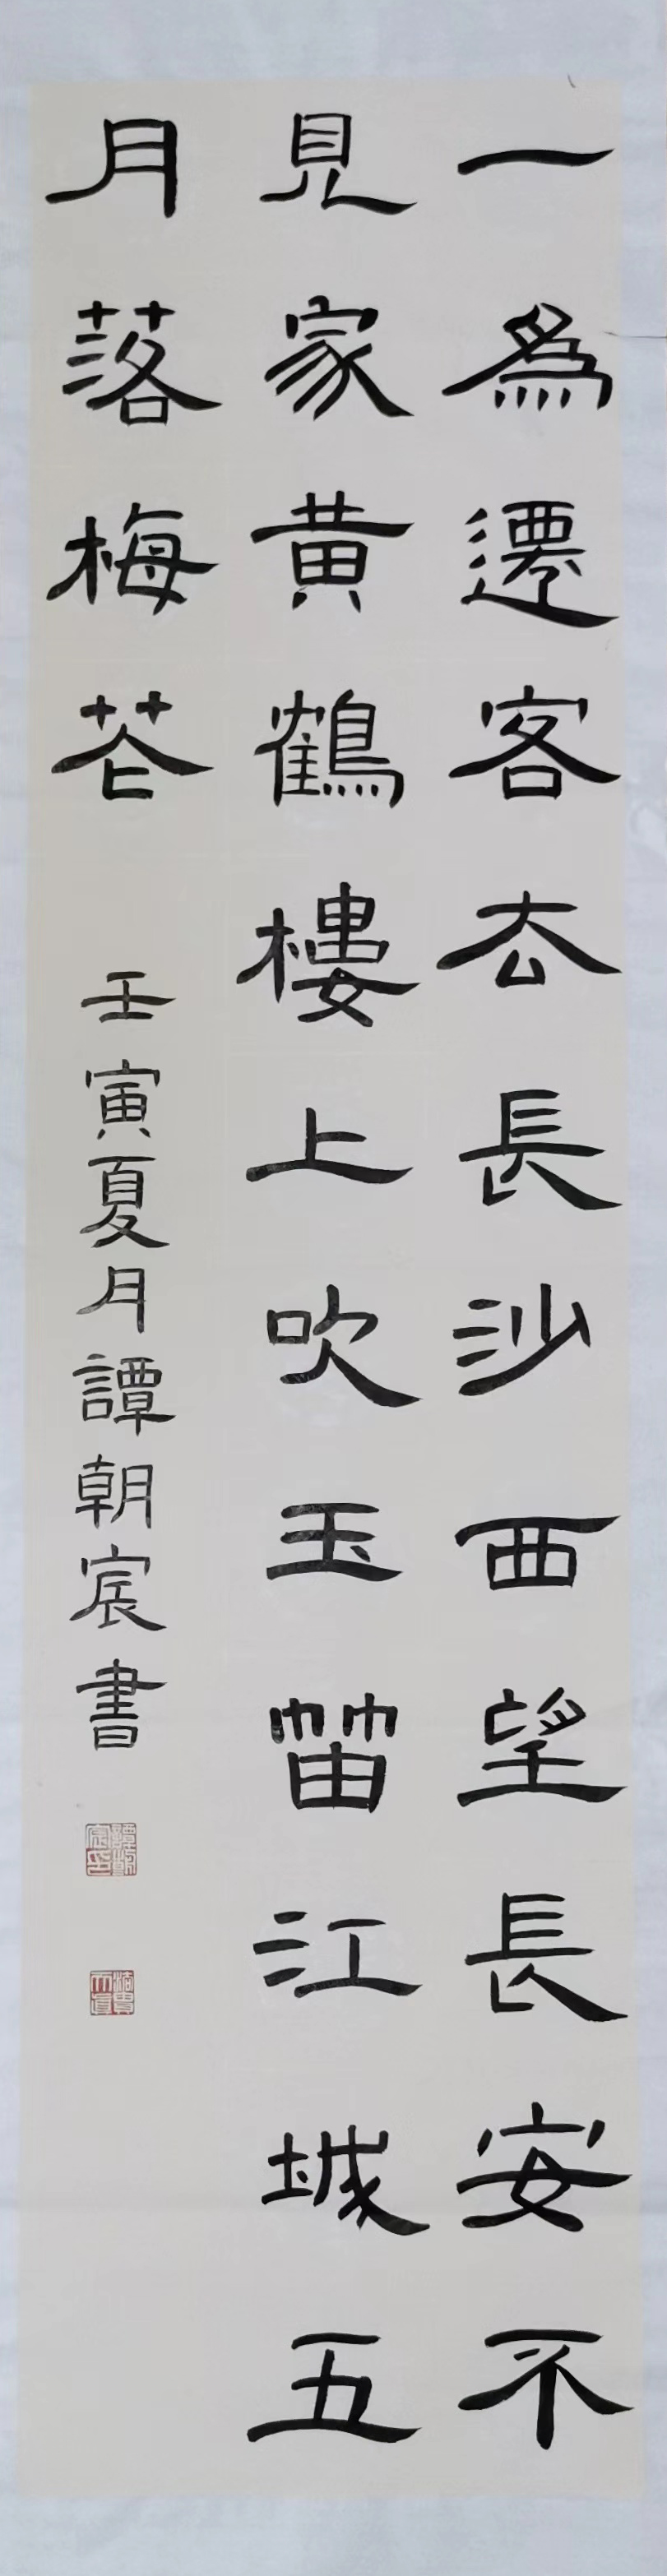 一為遷客去長沙西望長安不
見家黄鶴樓上吹玉笛江城五
月落梅花
壬寅夏月譚朝宸書